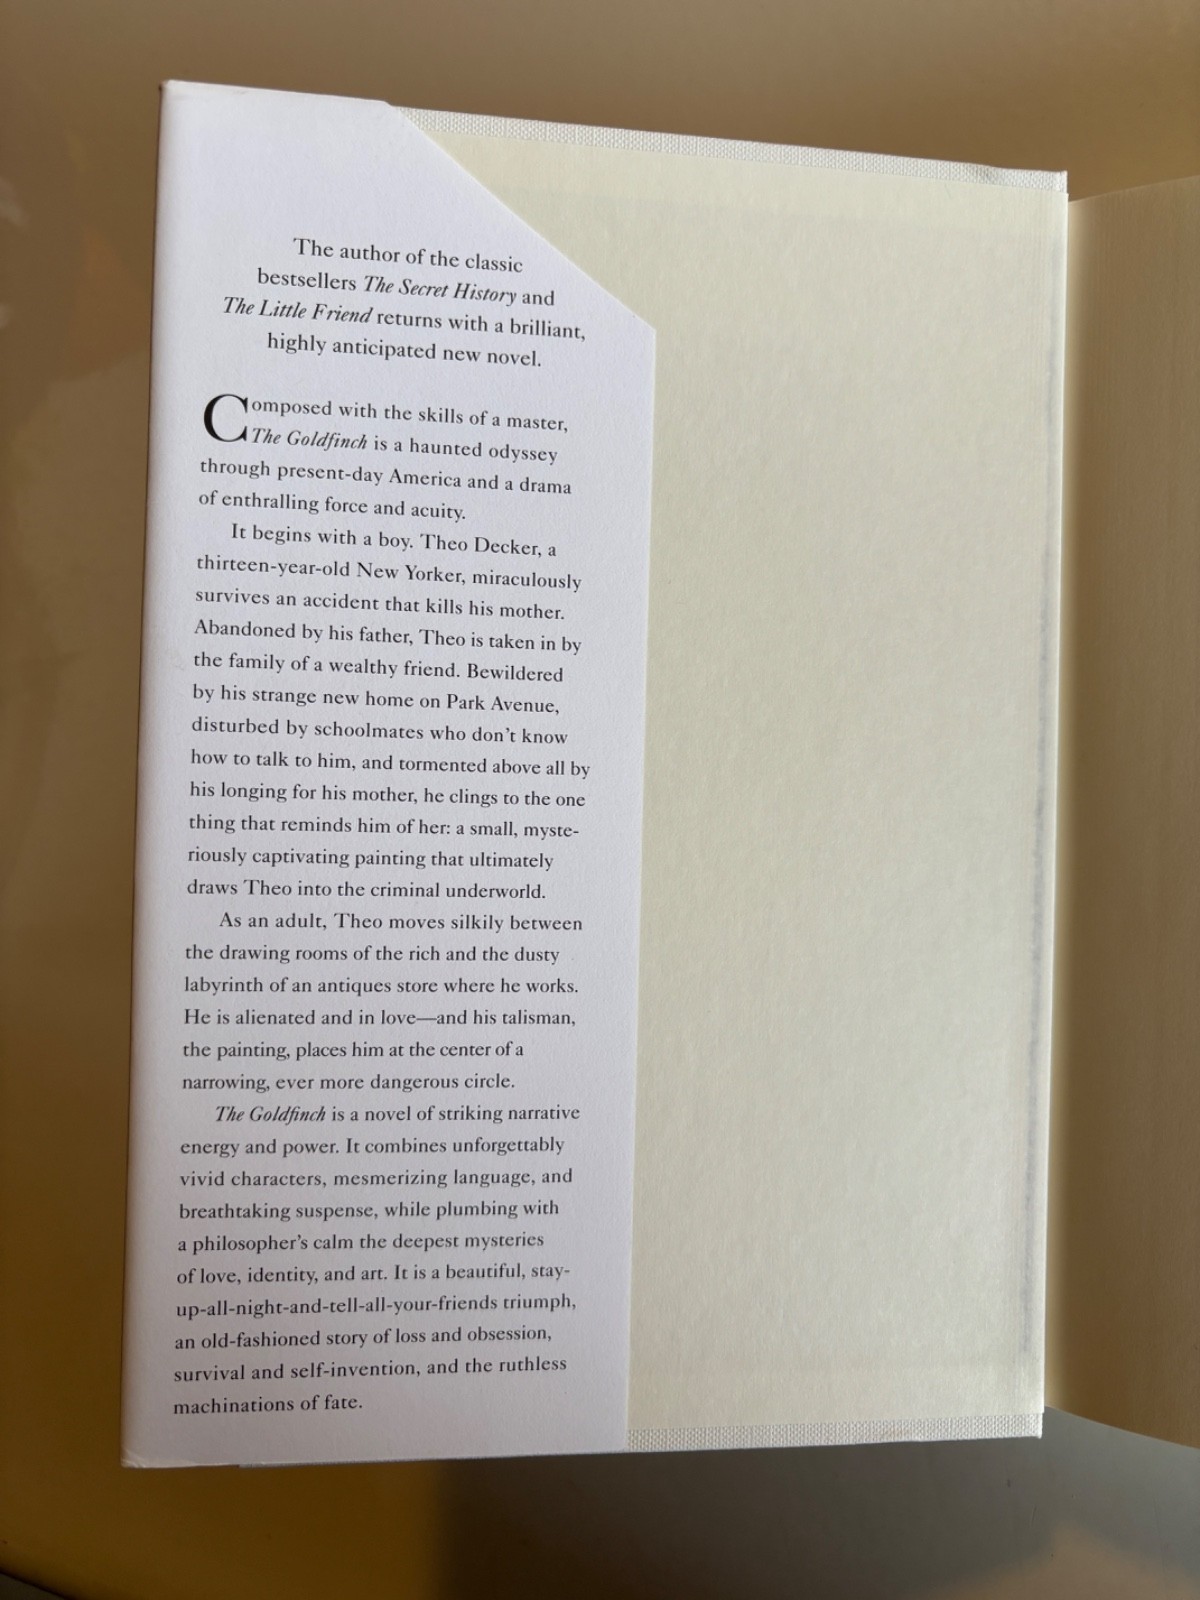 The author of the classic
bestsellers The Secret History and
The Little Friend returns with a brilliant,
highly anticipated new novel.
Composed with the skills of a master,
The Goldfinch is a haunted odyssey
through present-day America and a drama
of enthralling force and acuity.
It begins with a boy. Theo Decker, a
thirteen-year-old New Yorker, miraculously
survives an accident that kills his mother.
Abandoned by his father, Theo is taken in by
the family of a wealthy friend. Bewildered
by his strange new home on Park Avenue,
disturbed by schoolmates who don’t know
how to talk to him, and tormented above all by
his longing for his mother, he clings to the one
thing that reminds him of her: a small, myste-
riously captivating painting that ultimately
draws Theo into the criminal underworld.
As an adult, Theo moves silkily between
the drawing rooms of the rich and the dusty
labyrinth of an antiques store where he works.
He is alienated and in love—and his talisman,
the painting, places him at the center of a
narrowing, ever more dangerous circle.
The Goldfinch is a novel of striking narrative
energy and power. It combines unforgettably
vivid characters, mesmerizing language, and
breathtaking suspense, while plumbing with
a philosopher’s calm the deepest mysteries
of love, identity, and art. It is a beautiful, stay-
up-all-night-and-tell-all-your-friends triumph,
an old-fashioned story of loss and obsession,
survival and self-invention, and the ruthless
machinations of fate.